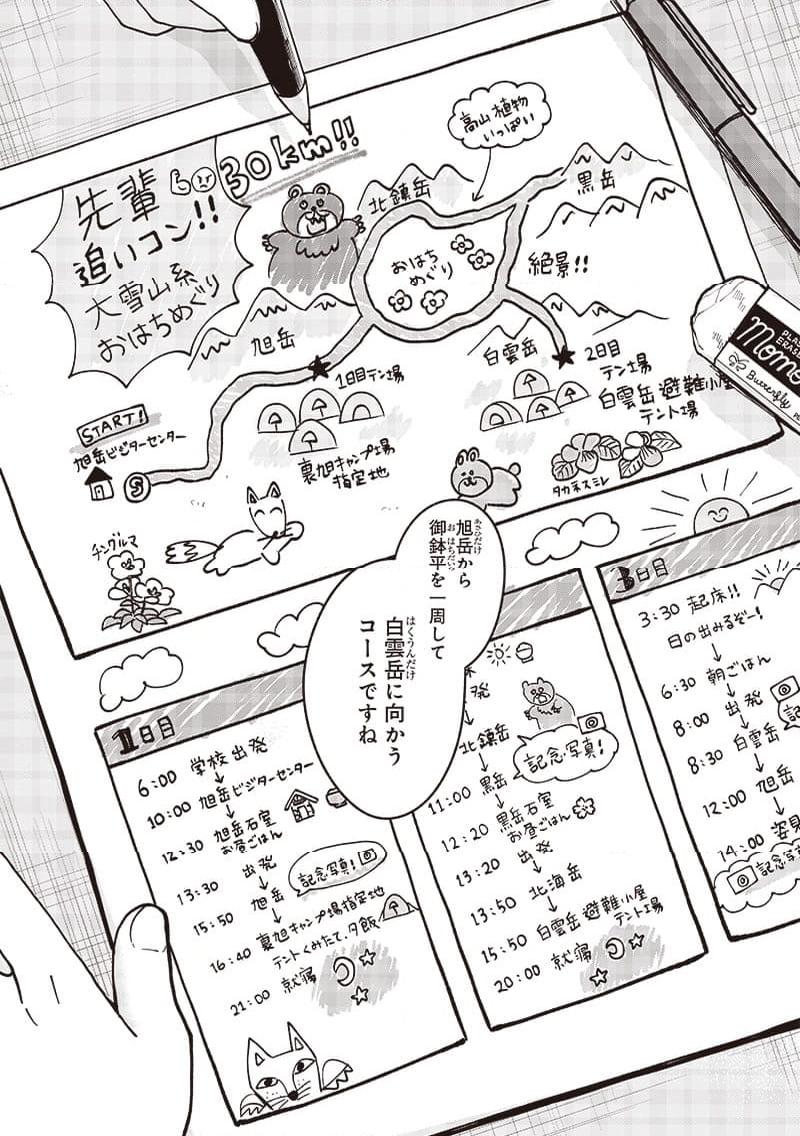 30km!!
先輩
追いコン!!
大雪山系
おはちめぐり
高山植物
いっぱい
北鎮岳
黒岳
おはち
めぐり
絶景!!
旭岳
白雲岳
START!
旭岳ビジターセンター
S
1日目テン場
裏旭キャンプ場
指定地
2日目
テン場
白雲岳避難小屋
テント場
タカネスミレ
チングルマ
Butterfly
旭岳から
あさひだけ
御鉢平を一周して
おはちだいら
白雲岳に向かう
はくうんだけ
コースですね
1日目
6:00 学校出発
↓
10:00 旭岳ビジターセンター
↓
12:30 旭岳石室
お昼ごはん
↓
13:30 出発
↓
記念写真!
15:50 旭岳
↓
16:40 裏旭キャンプ場指定地
テントくみたて、夕飯
↓
21:00 就寝
発
↓
北鎮岳
↓
記念写真!
11:00 黒岳
↓
12:20 黒岳石室
お昼ごはん
↓
13:20 出発
↓
13:50 北海岳
↓
15:50 白雲岳避難小屋
テント場
↓
20:00 就寝
3日目
3:30 起床!!
日の出みるぞー!
↓
6:30 朝ごはん
↓
8:00 出発
↓
8:30 白雲岳
↓
12:00 旭岳
↓
14:00 姿見
記念写真